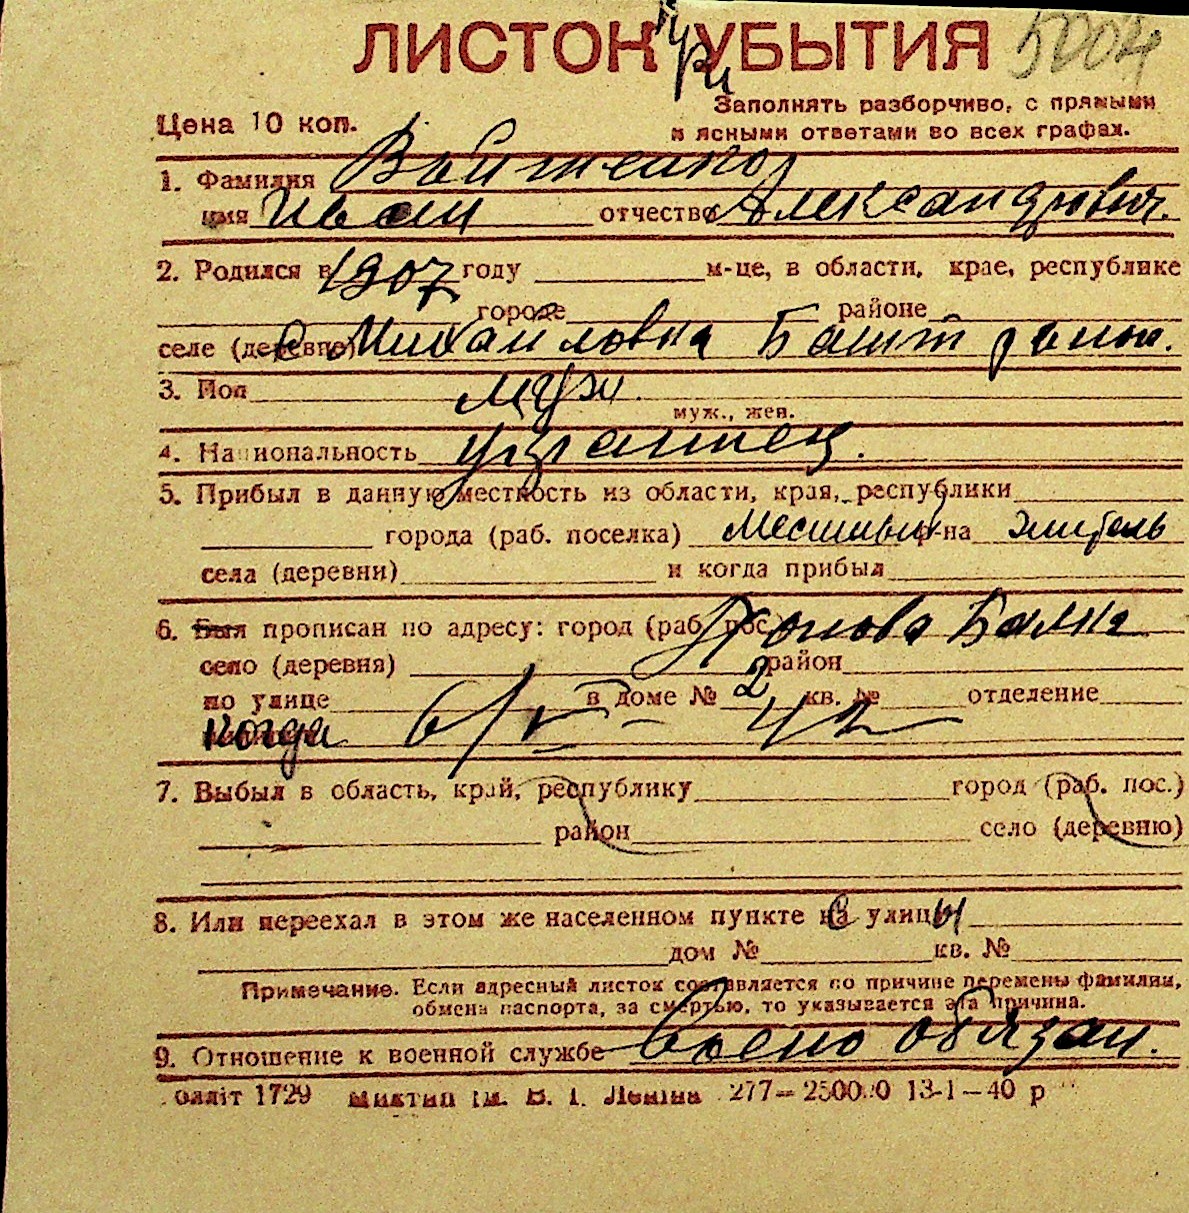 ЛИСТОК УБЫТИЯ
Цена 10 коп.
Заполнять разборчиво, с прямыми
и ясными ответами во всех графах.
1. Фамилия Войтенко
имя Иван отчество Александрович.
2. Родился в 1907 году м-це, в области, крае, республике
городе районе
селе (деревне) с. Михайловка Башт района.
3. Пол муж.
муж., жен.
4. Национальность украинец.
5. Прибыл в данную местность из области, края, республики
города (раб. поселка) местный р-на житель
села (деревни) и когда прибыл
6. Был прописан по адресу: город (раб. пос.) Балка
село (деревня) район
по улице в доме № 2 кв. № отделение
когда 6/V - 42
7. Выбыл в область, край, республику город (раб. пос.)
район село (деревню)
8. Или переехал в этом же населенном пункте с улицы
дом № кв. №
Примечание. Если адресный листок составляется по причине перемены фамилии,
обмена паспорта, за смертью, то указывается эта причина.
9. Отношение к военной службе Воено обязан.
олліт 1729 ім. В. І. Леніна 13-1-40 р